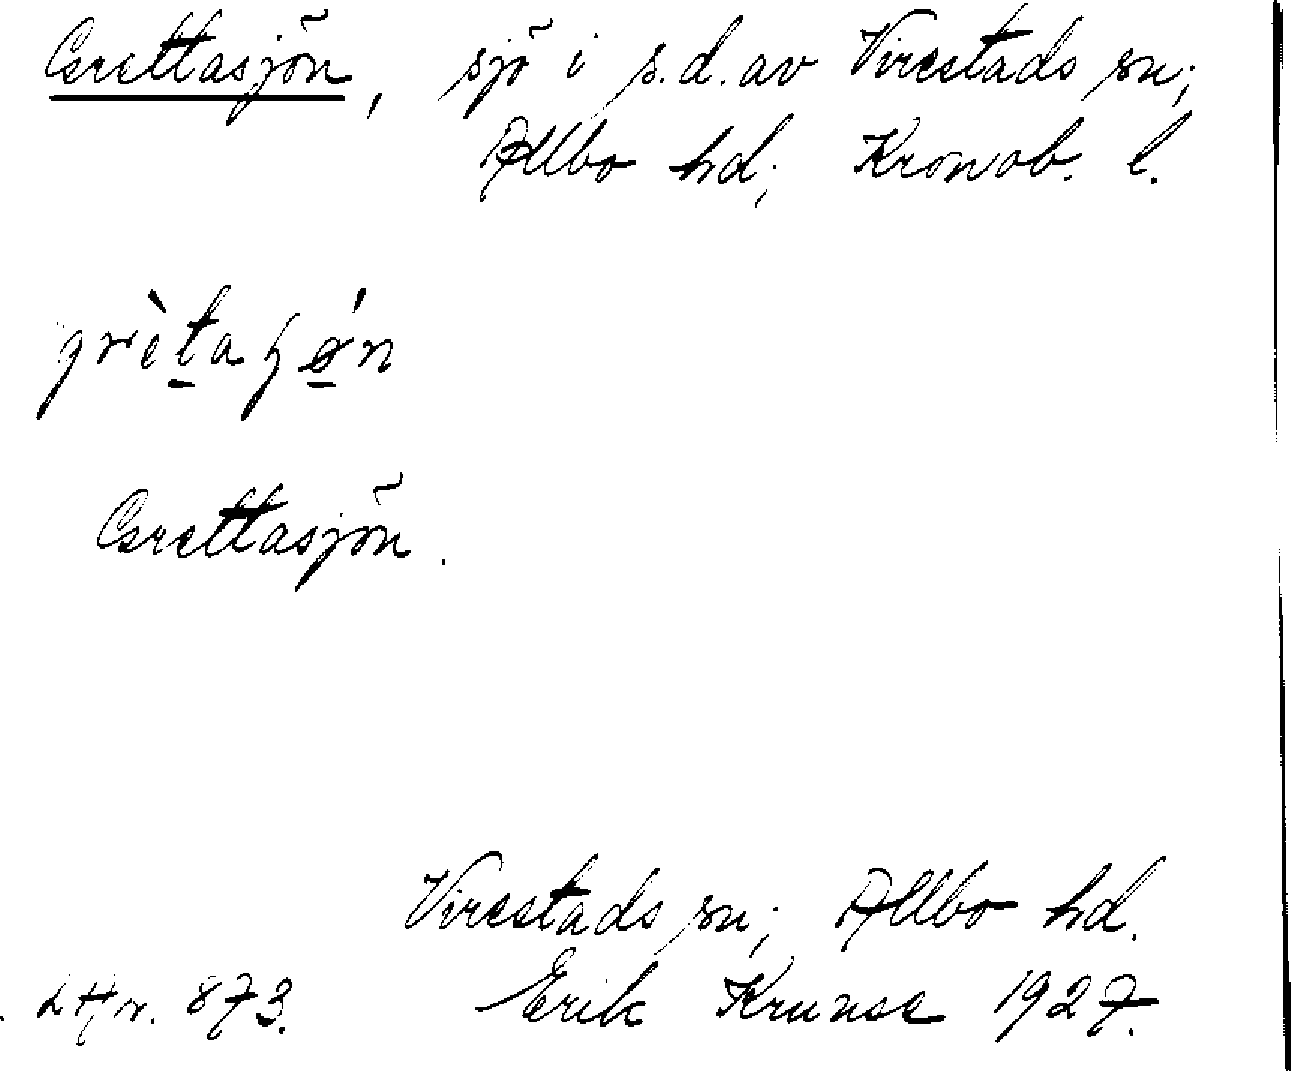 Grettasjön, sjö i s.d. av Virestads sn;
Allbo hd; Kronob. l.
grètaɧǿn
Grettasjön.
Virestads sn; Allbo hd.
LHr. 873. Erik Kruuse 1927.